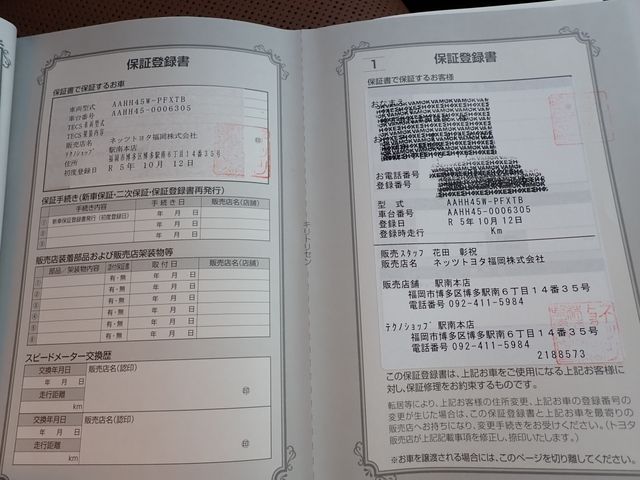 保証登録書
保証書で保証するお車
車両型式 AAHH45W-PFXTB
車台番号 AAHH45-0006305
TECS車両型式
TECS架装内容
販売店名 ネッツトヨタ福岡株式会社
テクノショップ 駅南本店
住所 福岡市博多区博多駅南6丁目14番35号
初度登録日 R 5年 10月 12日
保証手続き(新車保証・二次保証・保証登録書再発行)
手続き内容 手続き日 販売店名(店舗)
1 新車保証登録書発行(初度登録日) 年 月 日
2 年 月 日
3 年 月 日
販売店装着部品および販売店架装物等
部品/架装物内容 添付保証書 取付日 販売店名(店舗)
1 有・無 年 月 日
2 有・無 年 月 日
3 有・無 年 月 日
4 有・無 年 月 日
5 有・無 年 月 日
6 有・無 年 月 日
スピードメーター交換歴
交換年月日 販売店名(認印)
年 月 日
走行距離 印
km
交換年月日 販売店名(認印)
年 月 日
走行距離 印
km
キリトリセン
1
保証登録書
保証書で保証するお客様
おなまえ
お電話番号
登録番号
型式 AAHH45W-PFXTB
車台番号 AAHH45-0006305
登録日 R 5年 10月 12日
登録時走行 Km
販売スタッフ 花田 彰祝
販売店名 ネッツトヨタ福岡株式会社
販売店舗 駅南本店
福岡市博多区博多駅南6丁目14番35号
電話番号 092-411-5984
テクノショップ 駅南本店
福岡市博多区博多駅南6丁目14番35号
電話番号 092-411-5984
2188573
この保証登録書は、上記お車をご使用になる上記お客様に
対し、保証修理をお約束するものです。
転居等により、上記お客様の住所変更、上記お車の登録番号の
変更が生じた場合は、この保証登録書と上記お車を最寄りの
販売店へお持ちになり、変更手続きをお受けください。(トヨタ
販売店が上記記載事項を修正し、捺印いたします。)
※お車を譲渡される場合には、このページを切り離してください。